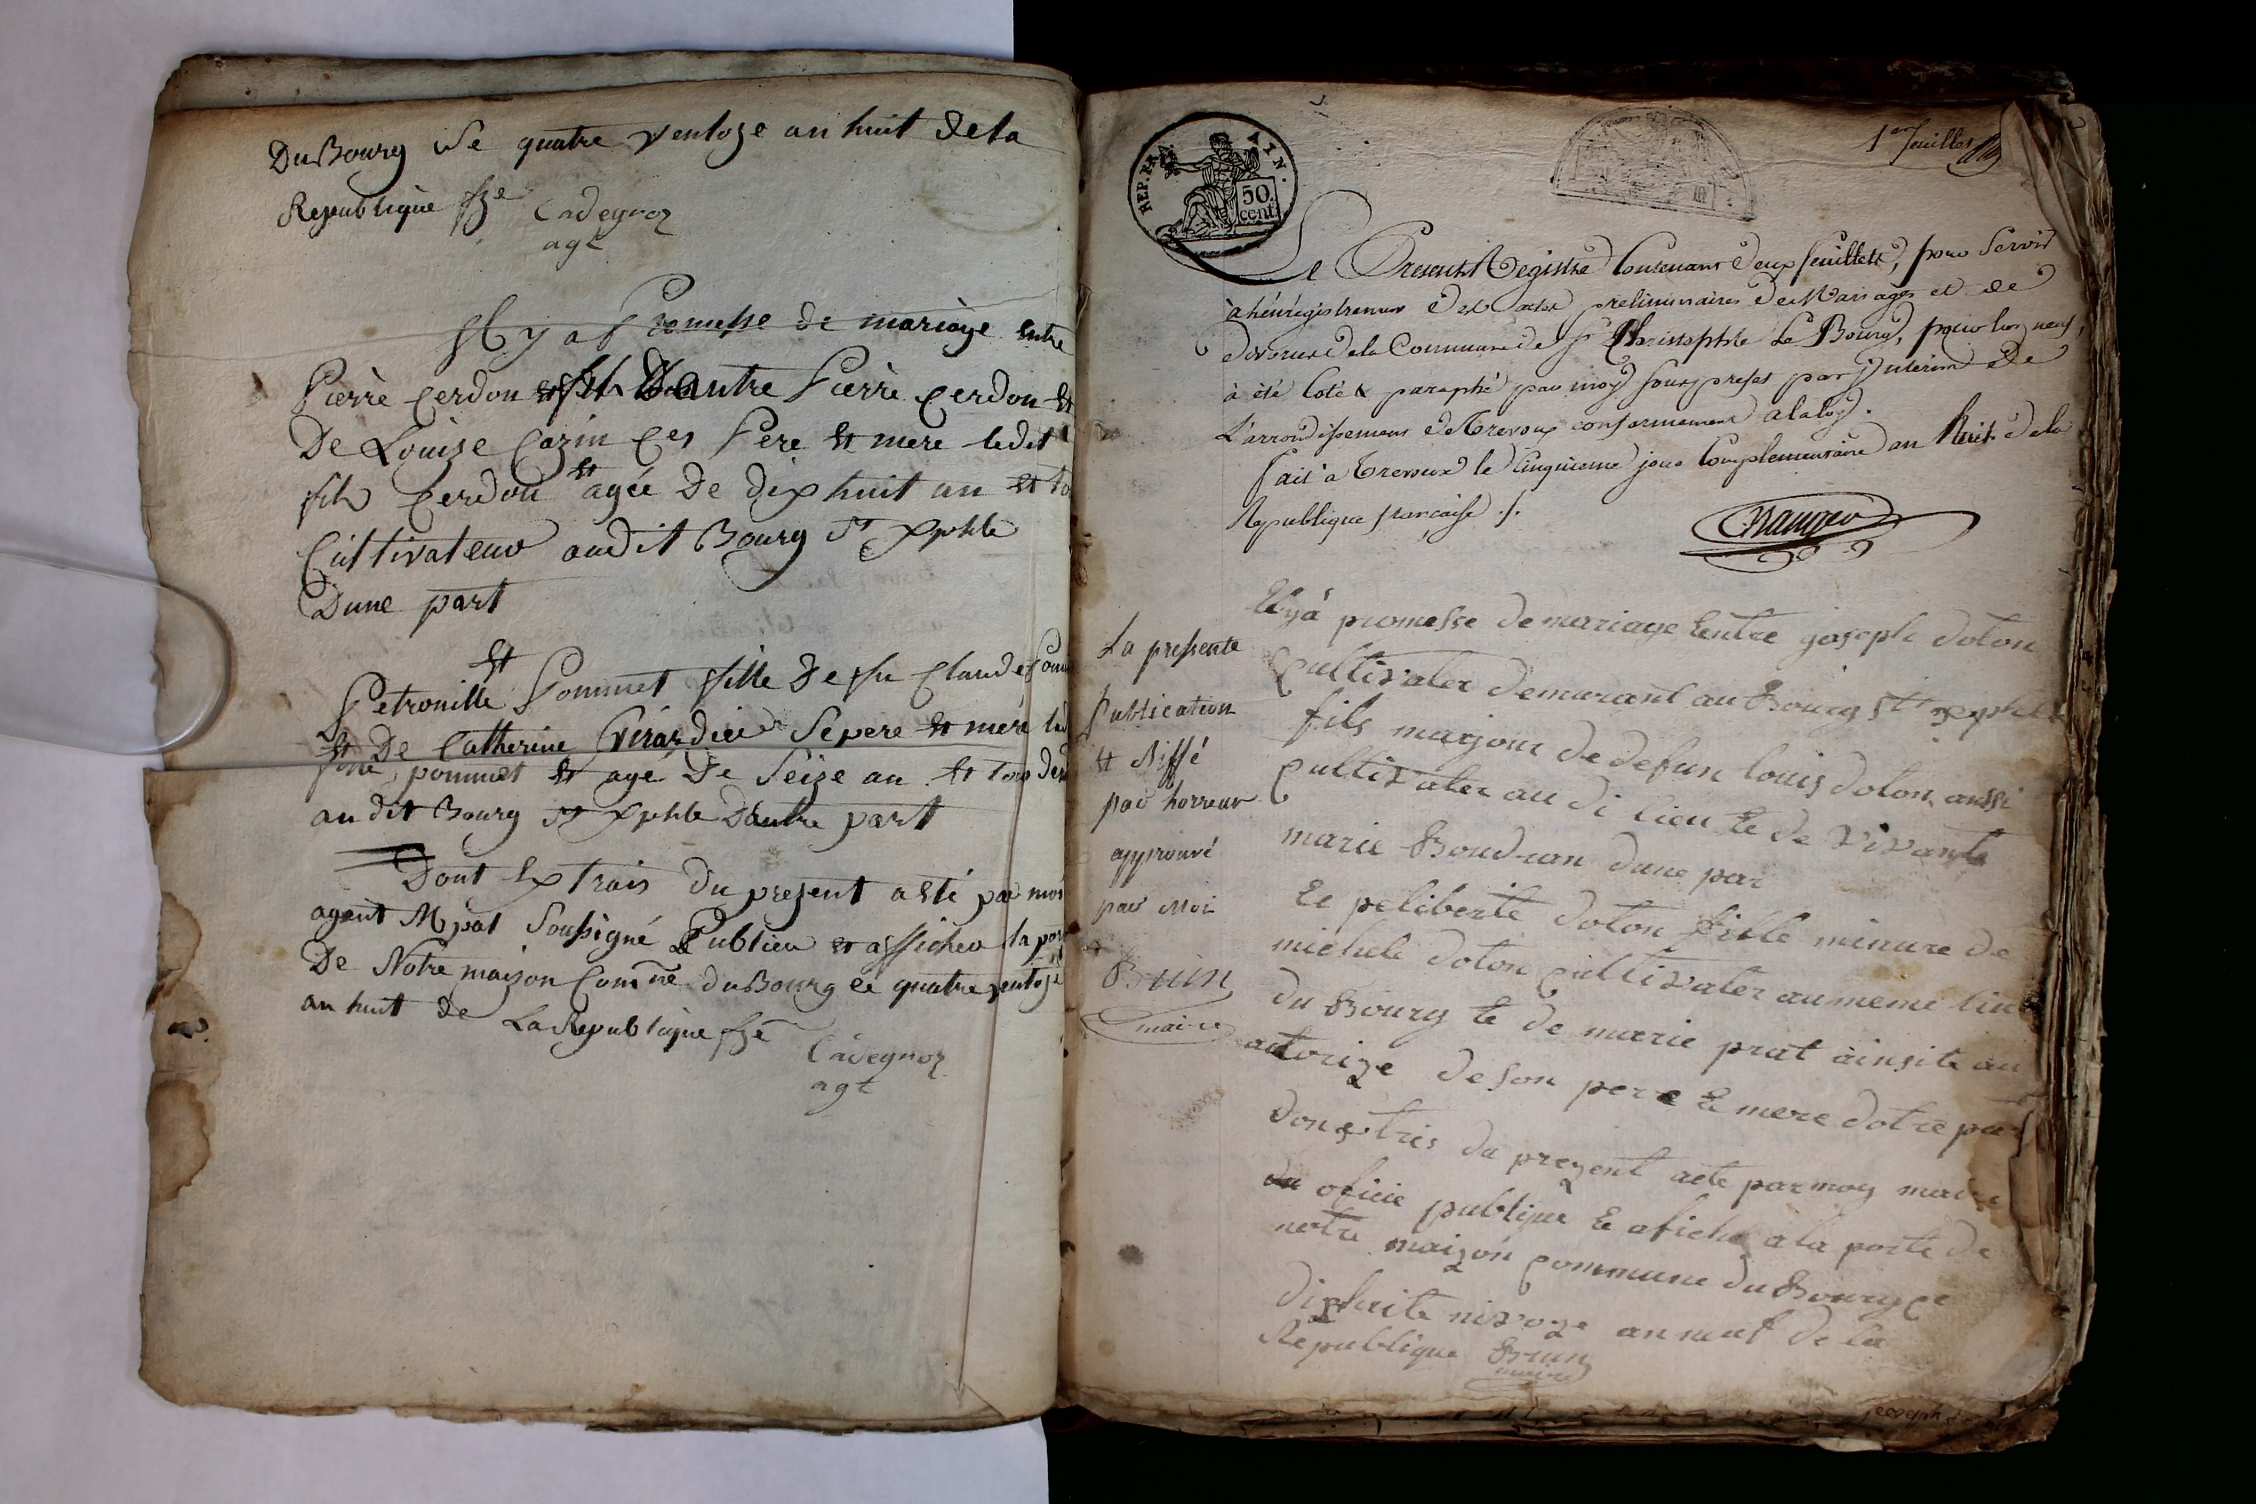 Du Bourg se quatre ventoze an huit dela
Republique fse Cadegnoz
agt
Il y a Promesse de mariage entre
Pierre Cerdon fils Dautre Pierre Cerdon et
De Louise Cozin Ces Pere et mere ledit
fils Cerdon et agée De dix huit an et
Cultivateur audit Bourg st xphle
Dune part
et
Petronille Pommet fille de fu Claude
et De Catherine Girardier Sepere et mere
fille pommet et agé De Seize an et
au dit Bourg st xphle Dautre part
Dont Extrais du prezent a eté par moi
agent Mpal Soussigné Publieu et afficheu la
De Notre maizon Comne du Bourg ce quatre ventoze
an huit de La Republique fse
Cadegnoz
agt
1er feuillet
REP. FRA. 50 cent.
Le Present Registre Contenant deux feuillets, pour Servir
à l'énrégistrement des actes preliminaires de Mariages et de
divorces de la Commune de St Christophle Le Bourg, pour l'an neuf,
à été Coté & paraphé par moy Sous prefet par jnterim de
L'arrondissement de Trevoux conformement a la loy.
fait a Trevoux le Cinquieme jour Complementaire an huit de la
Republique française ./.
Il y á promesse de marriage Eentre joseph doton
Cultivater demurant au Bourg st xphle
fils marjour de defun louis doton aussi
Cultivater au di lieu Ee de vivante
marie Boudran dune par
Ee peliberte doton fille minure de
michele doton Cultivater au meme
du Bourg Ee de marie prat ainsite
actorize de son pere Ee mere dotre
du prezent acte par moy maire
oficie publique Ee afiche a la porte de
notre maizon commune du Bourg ce
dixhuite nivoze an neuf de la
Republique Brun
maire
La presente
Publication
et Biffé
par horreur
approuvé
par Moi
Brun
maire
joseph